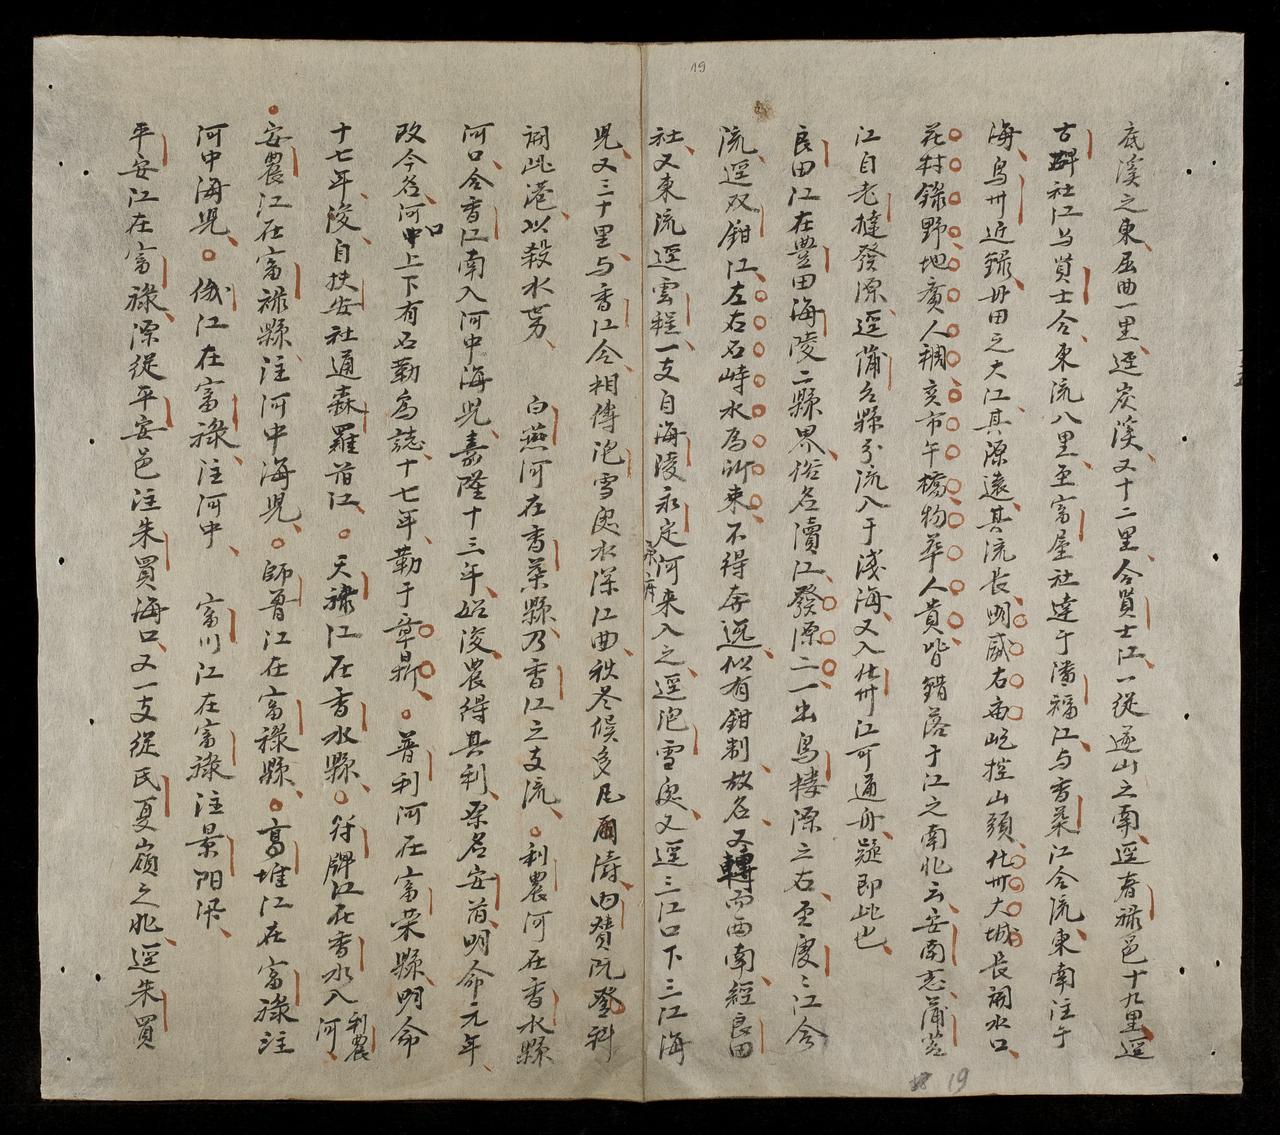 底溪之東屈曲一里逕炭溪又十二里合賢士江一從逐山之南逕春祿邑十九里逕
古碑社江与賢士合東流八里至富屋社達于潘福江与香葉江合流東南注于
海烏州近錄丹田之大江其源遠其流長明威右廟屹控山頭化州大城長開水口
花村綠野地廣人稠亥市午橋物華人貴皆錯落于江之南北云安南志蒲荖
江自老撾發源逕蒲台縣分流入于淺海又入化州江可通舟疑即此也
良田江在豊田海陵二縣界俗名瀆江發源二一出烏樓源之右至度〻江合
流逕双鉗江左右石峙水為所束不得奔逸似有鉗制故名又轉而西南經良田
社又東流逕雲程一支自海陵永定河来入之逕泡雪奥又逕三江口下三江海
承府
児又三十里与香江合相傳泡雪奥水深江曲秩冬候多凡爾濤内賛阮登科
開此港以殺水勢 白燕河在香葉縣乃香江之支流 利農河在香水縣
河口合香江南入河中海児嘉隆十三年始浚農得其利原名安首明命元年
改今名河中口上下有石勒為誌十七年勒于章鼎 普利河在富荣縣明命
十七年浚自扶安社通森羅首江 天祿江在香水縣 符牌江在香水入利農河
安農江在富祿縣注河中海児 師曾江在富祿縣 高堆江在富祿注
河中海児 俄江在富祿注河中 富川江在富祿注景阳渃
平安江在富祿源從平安邑注朱買海口又一支從民夏嶺之北逕朱買
19
19